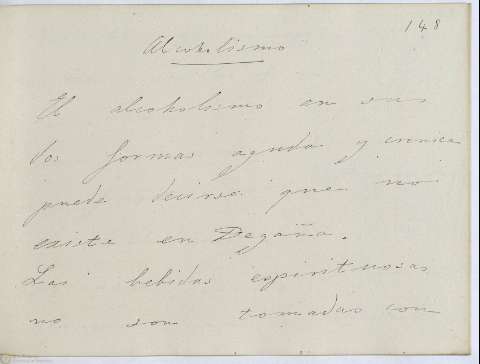 148
Alcoholismo
El alcoholismo en sus
dos formas aguda y cronica
puede decirse que no
existe en Degaña.
Las bebidas espirituosas
no son tomadas con